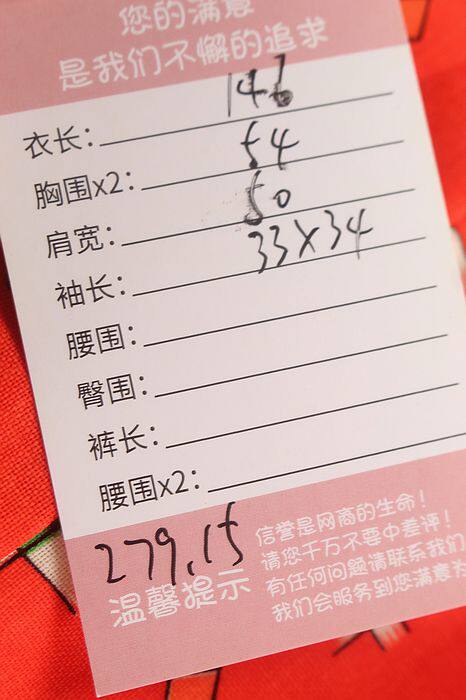 您的满意
是我们不懈的追求
衣长: 146
胸围x2: 54
肩宽: 50
袖长: 33x34
腰围:
臀围:
裤长:
腰围x2:
279.15
温馨提示
信誉是网商的生命!
请您千万不要中差评!
有任何问题请联系我们
我们会服务到您满意为